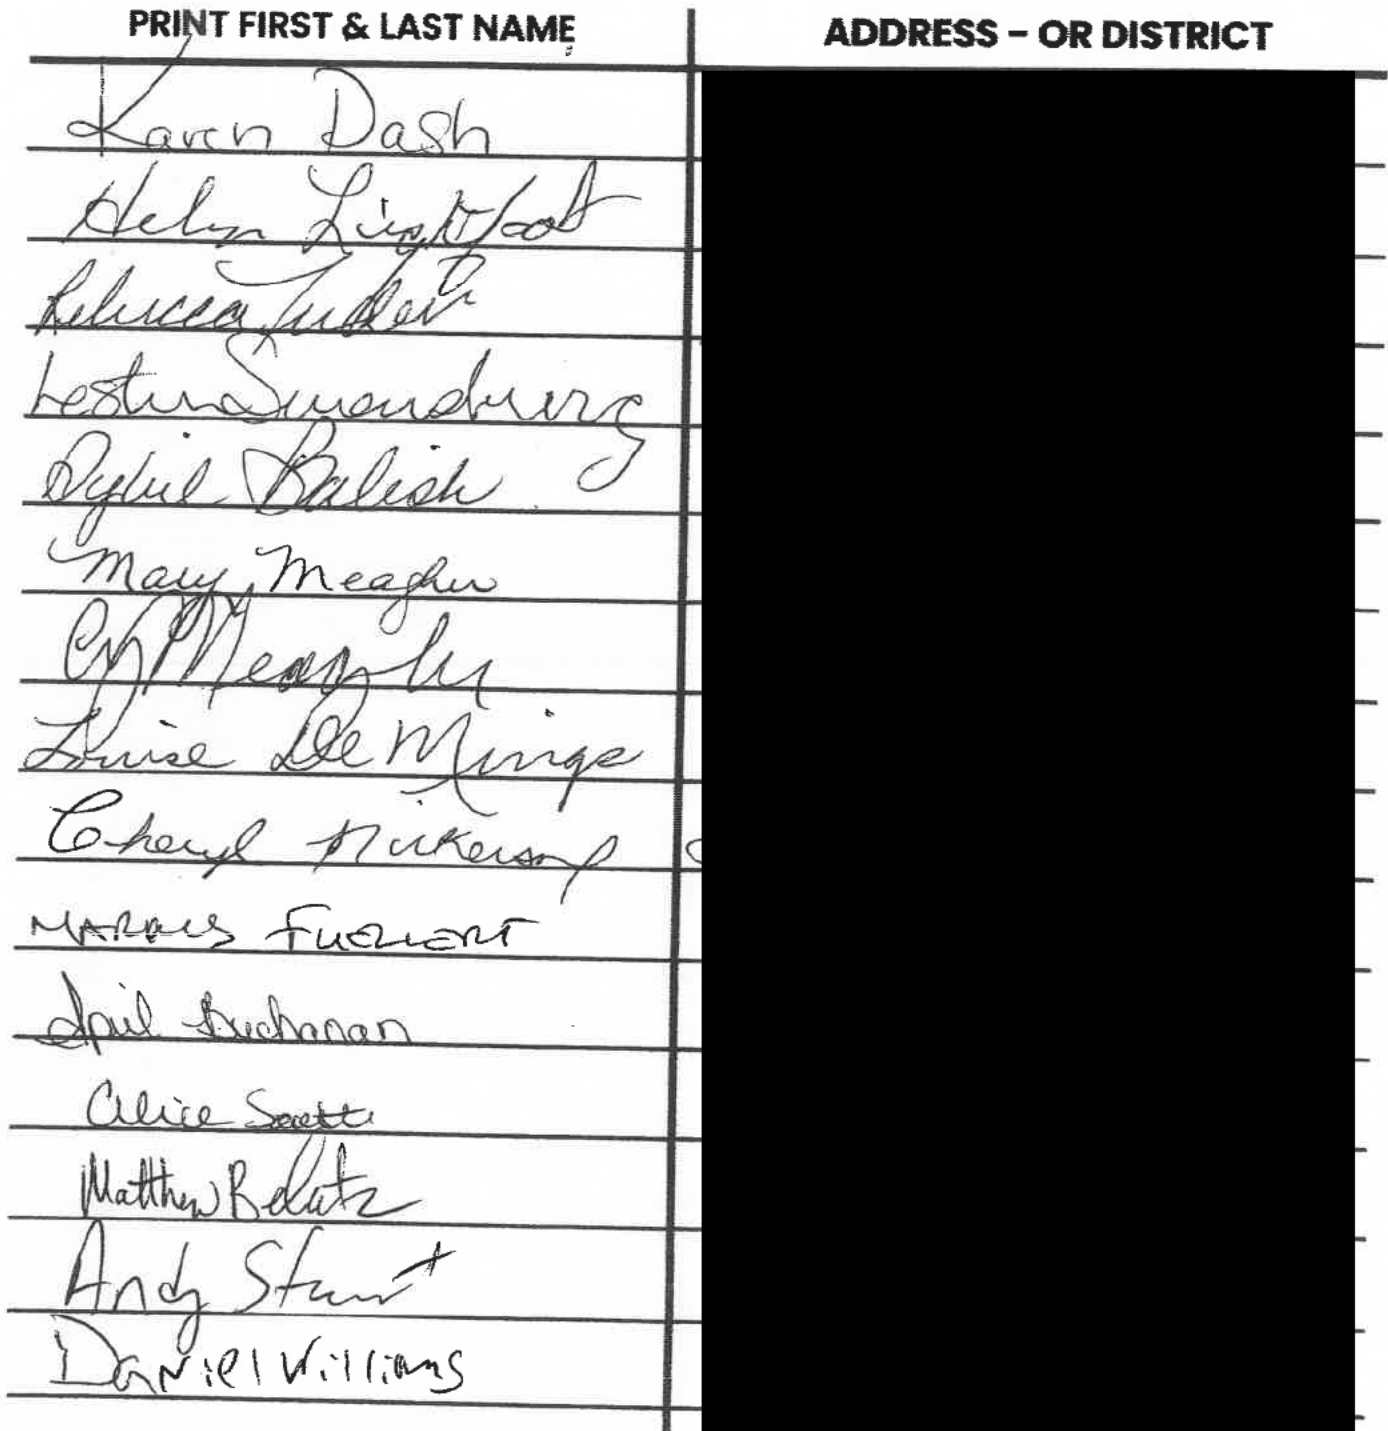 PRINT FIRST & LAST NAME ADDRESS – OR DISTRICT
Karen Dash
Helyn Lightfoot
Rebecca
Lester Swendburg
Sybil Balish
Mary Meagher
Meagher
Louise De Mings
Cheryl Nickerson
MARKUS
April Buchanan
Alice
Matthew
Andy Stewart
Daniel Williams